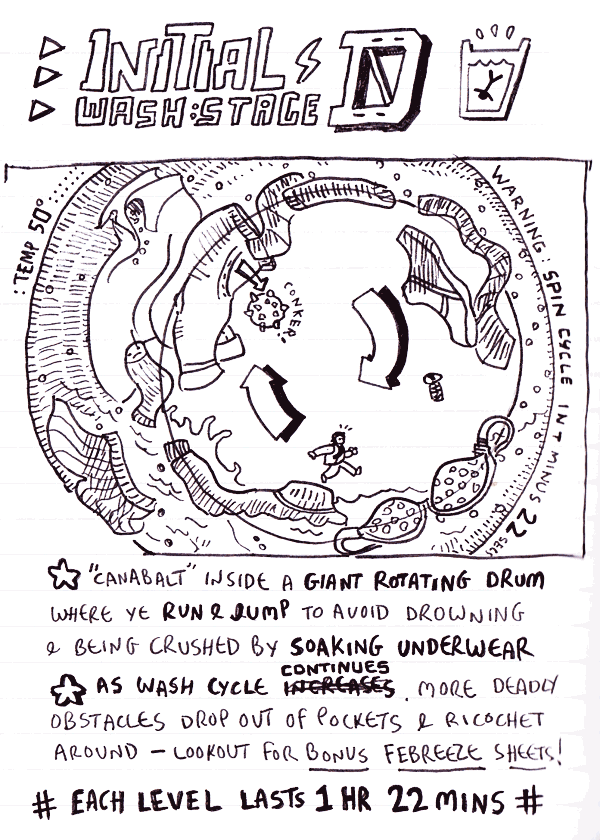 INITIAL D
WASH:STAGE
: TEMP 50°
WARNING: SPIN CYCLE IN T MINUS 22 SECS
CONKER!
"CANABALT" INSIDE A GIANT ROTATING DRUM
WHERE YE RUN & JUMP TO AVOID DROWNING
& BEING CRUSHED BY SOAKING UNDERWEAR
CONTINUES
AS WASH CYCLE INCREASES, MORE DEADLY
OBSTACLES DROP OUT OF POCKETS & RICOCHET
AROUND – LOOKOUT FOR BONUS FEBREEZE SHEETS!
# EACH LEVEL LASTS 1 HR 22 MINS #